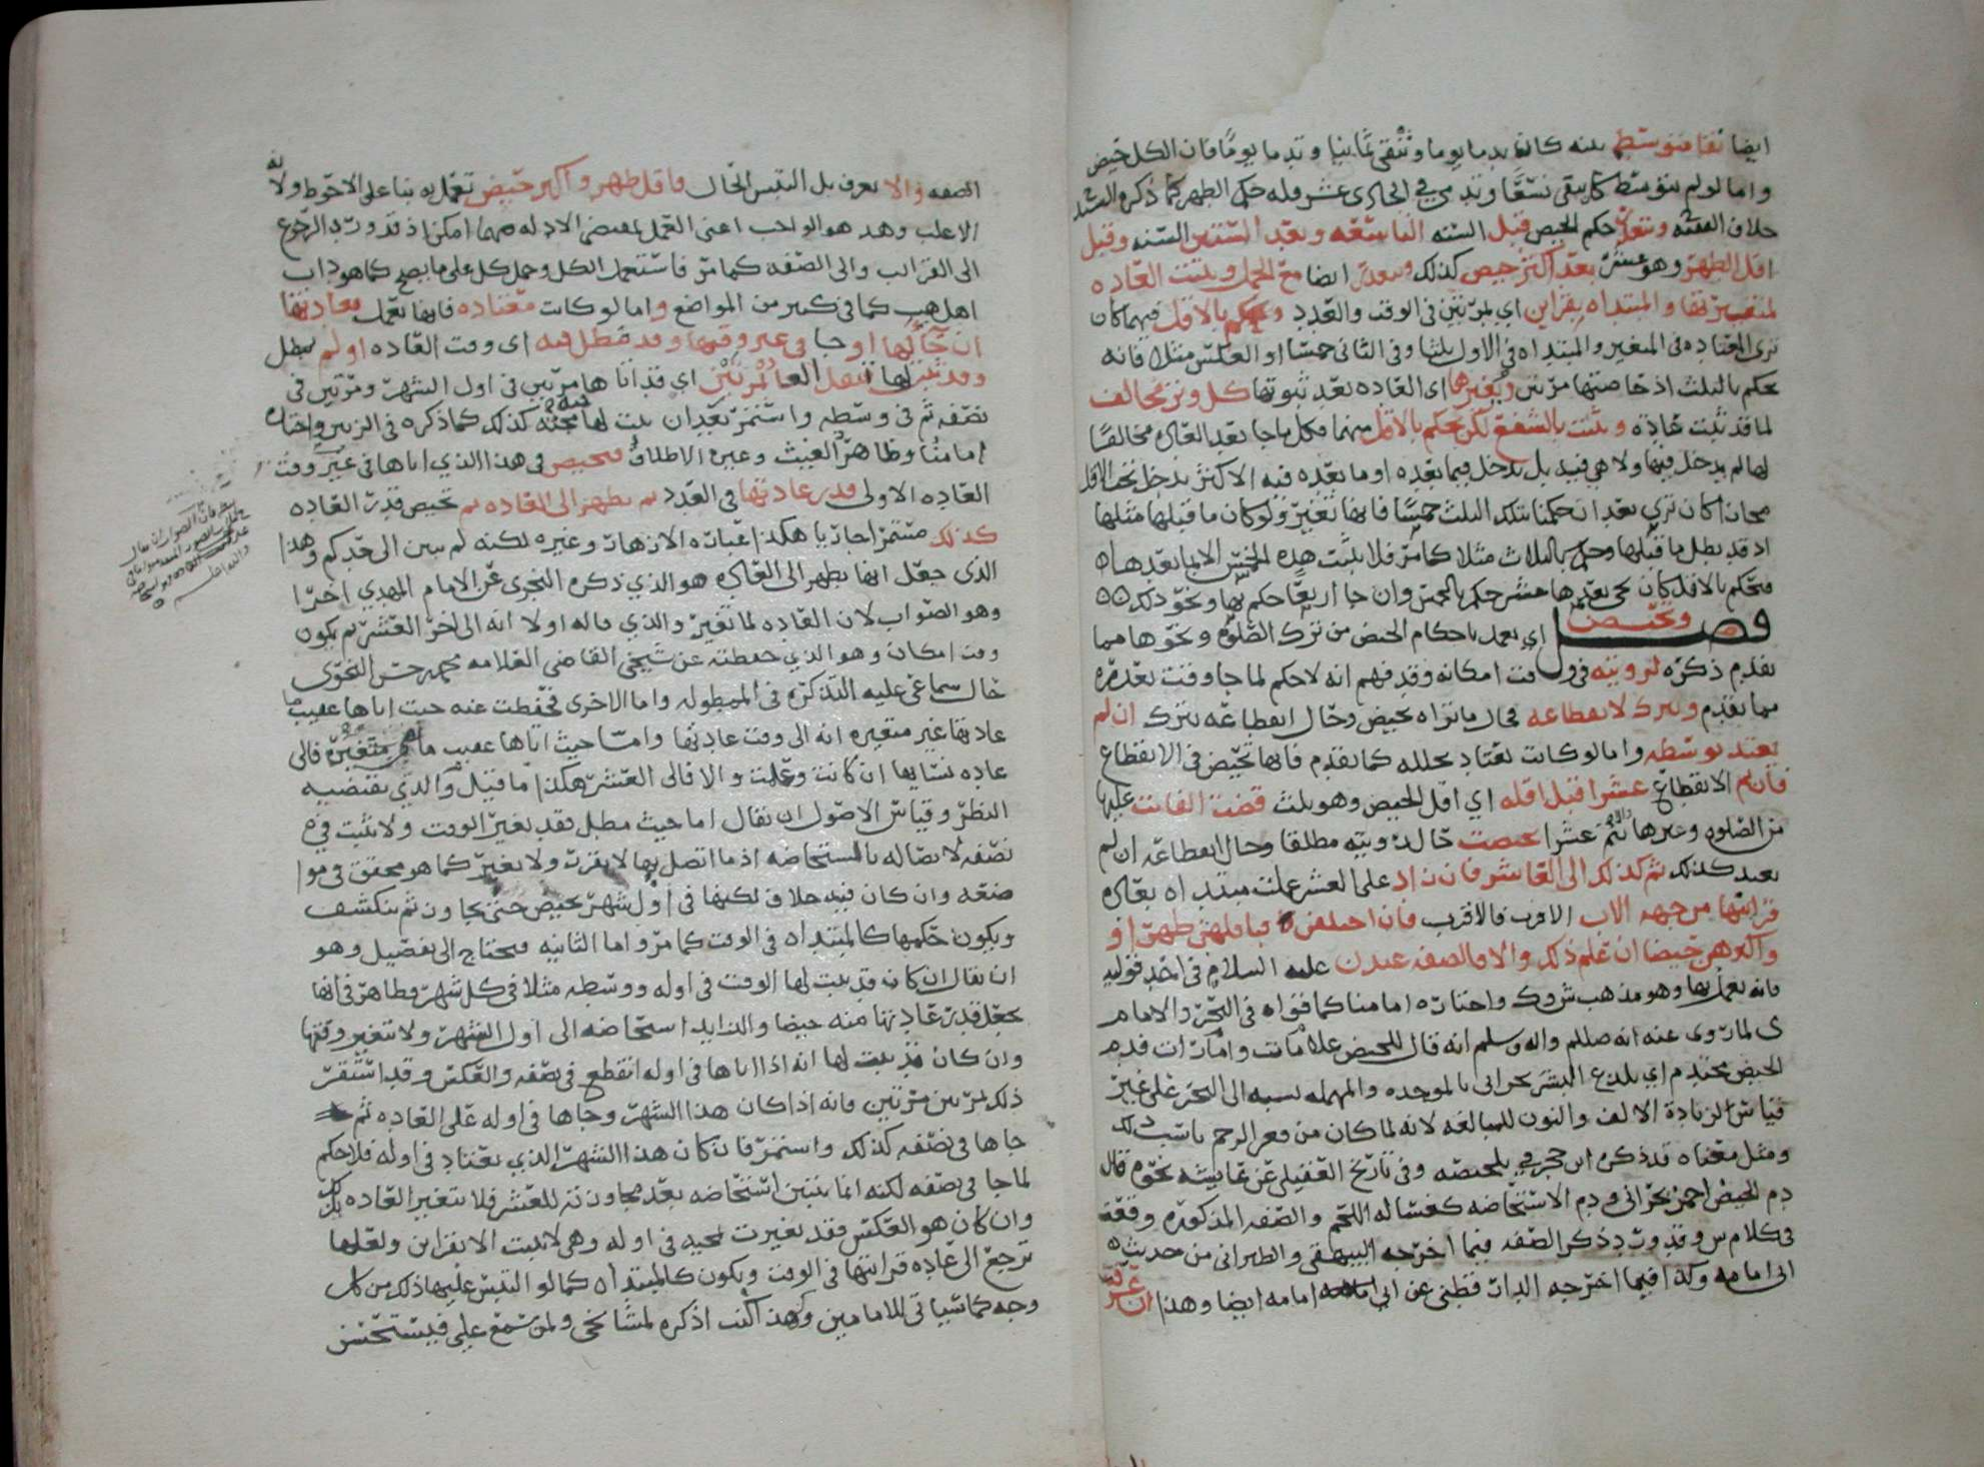 ايضا نقا متوسط بينه كان تدما يوما وتنقى ثمانيا وتدما يوما فان الكل حيض
واما لو لم يتوسط كان يبقى تسعا وتدمى في الحادى عشر فله حكم الطهر كما ذكره
خلاف ويتعذر حكم الحيض قبل السنه التاسعه وبعد الستين السنه وقبل
اقل الطهر وهو عشر بعد اكثر حيض كذلك ويتعذر ايضا مع الحمل ويثبت العاده
لمتغيرتها والمبتداه بقراين اي بمرتين في الوقت والعدد ويحكم بالاقل فيهما كان
ترى المعتاده في المتغير والمبتداه في الاول ثلثا وفي الثانى خمسا او العكس مثلا فانه
يحكم بالثلث اذ حاضتها مرتين ويغيرها اى العاده بعد ثبوتها كل وتر مخالف
لما قد ثبت عادة ويثبت بالشفع لكن يحكم بالاقل منهما فكل ما جا بعد العاده مخالفا
لها لم يدخل فيها ولا هي فيه بل يدخل فيما بعده او ما بعده فيه الاكثر يدخل تحت الاقل
بعد ان حكمنا بتلك الثلث خمسا فانها تغير ولو كان ما قبلها مثلها
اذ قد بطل ما قبلها وحكم بالثلاث مثلا كما مر فلا يثبت هذه الخمس الا بما بعدها
فيحكم بالاقل كان يجي بعدها عشر حكم بالخمس وان جا اربعا حكم بها ونحو ذلك
فصل وتحيض اي يعمل باحكام الحيض من ترك الصلوه ونحوها مما
تقدم ذكره لرويته في وقت امكانه وقد فهم انه لا حكم لما جا وقت تعذره
مما تقدم وتترك لانقطاعه فحال ما تراه تحيض وحال انقطاعه تترك ان لم
يعتد توسطه واما لو كانت تعتاد تخلله كما تقدم فانها تحيض في الانقطاع
فان تم الانقطاع عشرا قبل اقله اي اقل الحيض وهو ثلث قضت الفائت عليها
من الصلوه وغيرها والا يتم عشرا تحيضت حال رويته مطلقا وحال انقطاعه ان لم
يعتد كذلك ثم كذلك الى العاشر فان زاد على العشر عملت مبتداه بعاده
قرائبها من جهة الاب الاقرب فالاقرب فان اختلفن فباقلهن طهرا او
واكثرهن حيضا ان علم ذلك والا فالصفه عند ن عليه السلام في احد قوليه
فانه يعمل بها وهو مذهب ش وك واختاره امامنا كما قواه في البحر والامام
ى لما روى عنه انه صللم واله وسلم انه قال للحيض علامات وامارات فدم
الحيض محتدم اي يلذع البشر بحرانى بالموحده والمهمله نسبه الى البحر على غير
قياس لزيادة الالف والنون للمبالغه لانه لما كان من قعر الرحم ناسب ذلك
ومثل معناه قد ذكره ابن حجر في تلخيصه وفي تاريخ العقيلى عن عايشه نحوه قال
دم الحيض احمر بحرانى ودم الاستحاضه كغساله اللحم والصفه المذكوره وقفه
في كلام س وقد ورد ذكر الصفه فيما اخرجه البيهقى والطبرانى من حديث
ابى امامه وكذا فيما اخرجه الدار قطنى عن ابي امامه ايضا وهذا ان عرف
الصفه والا يعرف بل التبس الحال فاقل طهر واكثر حيض تعمل به بنا على الاحوط ولانه
الاغلب وهذ هو الواجب اعنى العمل بمقتضى الادله مهما امكن اذ قد ورد الرجوع
الى القرائب والى الصفه كما مر فاستعمل الكل وحمل كل على ما يصح كما هو داب
اهل هب كما في كثير من المواضع واما لو كانت معتاده فانها تعمل بعادتها
ان جا لها او جا في غير وقتها وقد مطل فيه اى وقت العاده او لم يمطل
وقد ثبت لها تنقل العاده مرتين اي قد اتاها مرتين في اول الشهر ومرتين في
نصفه ثم في وسطه واستمر بعد ان ثبت لها كذلك كما ذكره في الزنين واختاره
امامنا وظاهر الغيث وغيره الاطلاق فتحيض في هذا الذي اتاها في غير وقت
العاده الاولى قدر عادتها في العدد ثم تطهر الى العاده ثم تحيض قدر العاده
كذلك مستمرا جاريا هكذا عباره الازهار وغيره لكنه لم يبين الى حد كم وهذا
الذى جعل انها تطهر الى العاده هو الذي ذكره النجرى عن الامام المهدي اخرا
وهو الصواب لان العاده لما تغير والذي قاله اولا انه الى اخر العشر ثم يكون
وقت امكان وهو الذي حفظته عن شيخي القاضى العلامه محمد بن حسن النحوى
حال سماعى عليه التذكره في الممطوله واما الاخرى فحفظت عنه حيث اتاها عقيب
عادتها غير متغيره انه الى وقت عادتها وامّا حيث اتاها عقيب ما هى متغيره فالى
عاده نسايها ان كانت وعلمت والا فالى العشر هكذا ما قيل والذي تقتضيه
النظر وقياس الاصول ان يقال اما حيث مطل فقد تغير الوقت ولا تثبت في
نصفه لاتصاله بالمستحاضه اذ ما اتصل بها لا يقرر ولا تغير كما هو محقق في موا
ضعه وان كان فيه خلاف لكنها في اول شهر تحيض حتى يجاوز ثم ينكشف
ويكون حكمها كالمبتداه في الوقت كما مر واما الثانيه فيحتاج الى تفصيل وهو
ان يقال ان كان قد ثبت لها الوقت في اوله ووسطه مثلا في كل شهر فظاهر فانها
تجعل قدر عادتها منه حيضا والزايد استحاضه الى اول الشهر ولا يتغير وقتها
وان كان قد ثبت لها انه اذا اتاها في اوله انقطع في نصفه والعكس وقد استقر
ذلك مرتين مرتين فانه اذا كان هذا الشهر وجاها في اوله على العاده ثم
جاها في نصفه كذلك واستمر فان كان هذا الشهر الذي تعتاد في اوله فلا حكم
لما جا في نصفه لكنه انما يتبين استحاضه بعد مجاوزته للعشر فلا يتغير العاده بذلك
وان كان هو العكس فقد تغيرت لمجيه في اوله وهى لا تثبت الا بقراين ولعلها
ترجع الى عاده قرائبها في الوقت ويكون كالمبتداه كما لو التبس عليها ذلك من كل
وجه كما سياتى للامامين وكنت اذكره لمشايخى ولمن سمع على فيستحسن